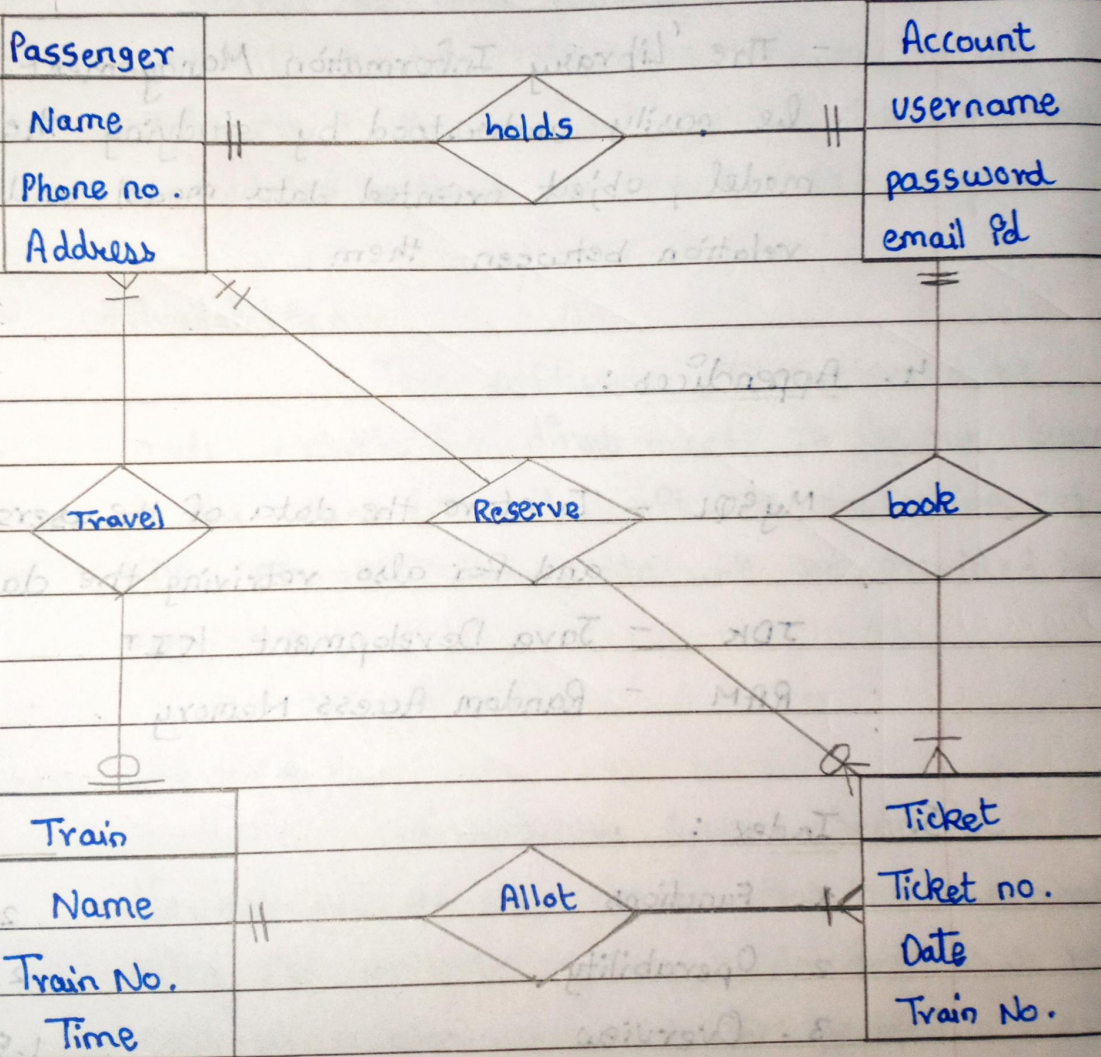 Passenger
Name
Phone no.
Address
holds
Account
username
password
email id
Travel
Reserve
book
Train
Name
Train No.
Time
Allot
Ticket
Ticket no.
Date
Train No.